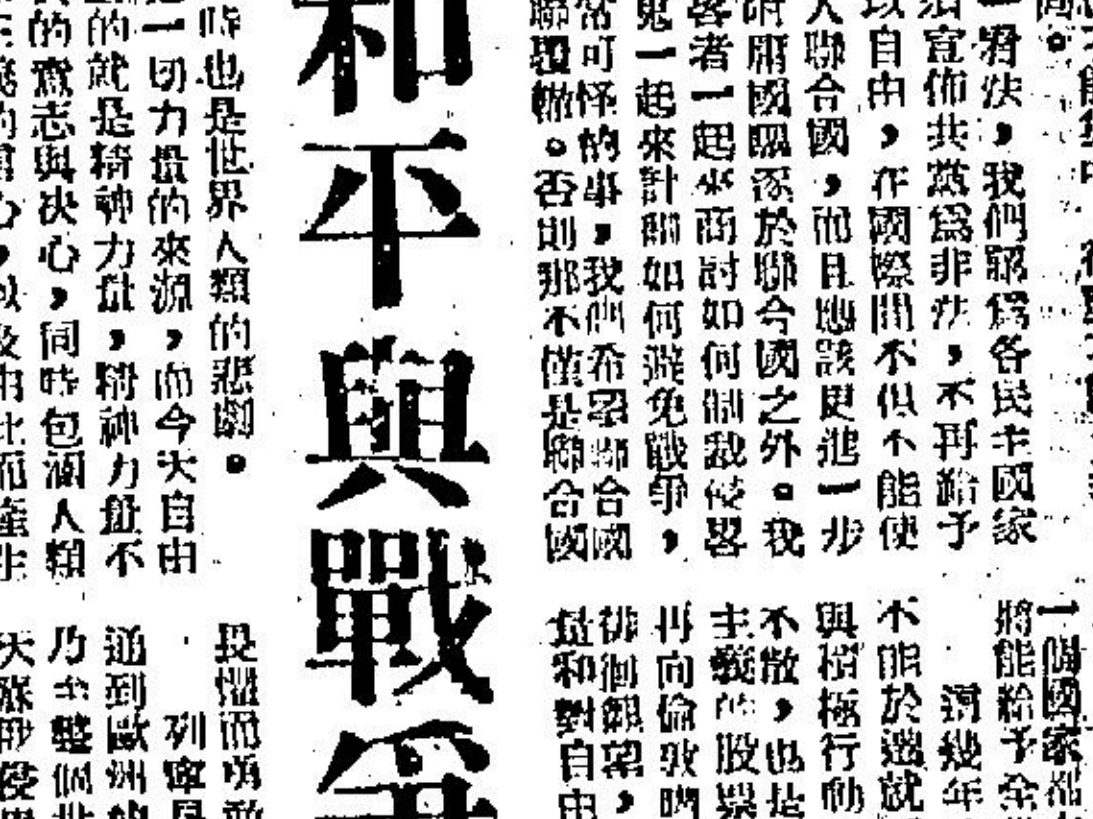 一辦法，我們認爲各民主國家
須宣佈共黨爲非法，不再給予
以自由，在國際間不但不能使
人聯合國，而且應該更進一步
附庸國驅逐於聯合國之外。我
畧者一起來商討如何制裁侵畧
鬼一起來計劃如何避免戰爭，
常可怪的事，我們希望聯合國
覆轍。否則那不僅是聯合國
一個國家都
將能給予全
還幾年
不能於遷就
與積極行動
不散，也是
主義的股票
再向倫敦購
徘徊觀望，
量和對自由
和平與戰爭
時也是世界人類的悲劇。
一切力量的來源，而今天自由
的就是精神力量，精神力量不
的意志與决心，同時包涵人類
心，以及由此而產生
畏懼而勇敢
列寧是
通到歐洲的
乃至整個世
天蘇俄侵